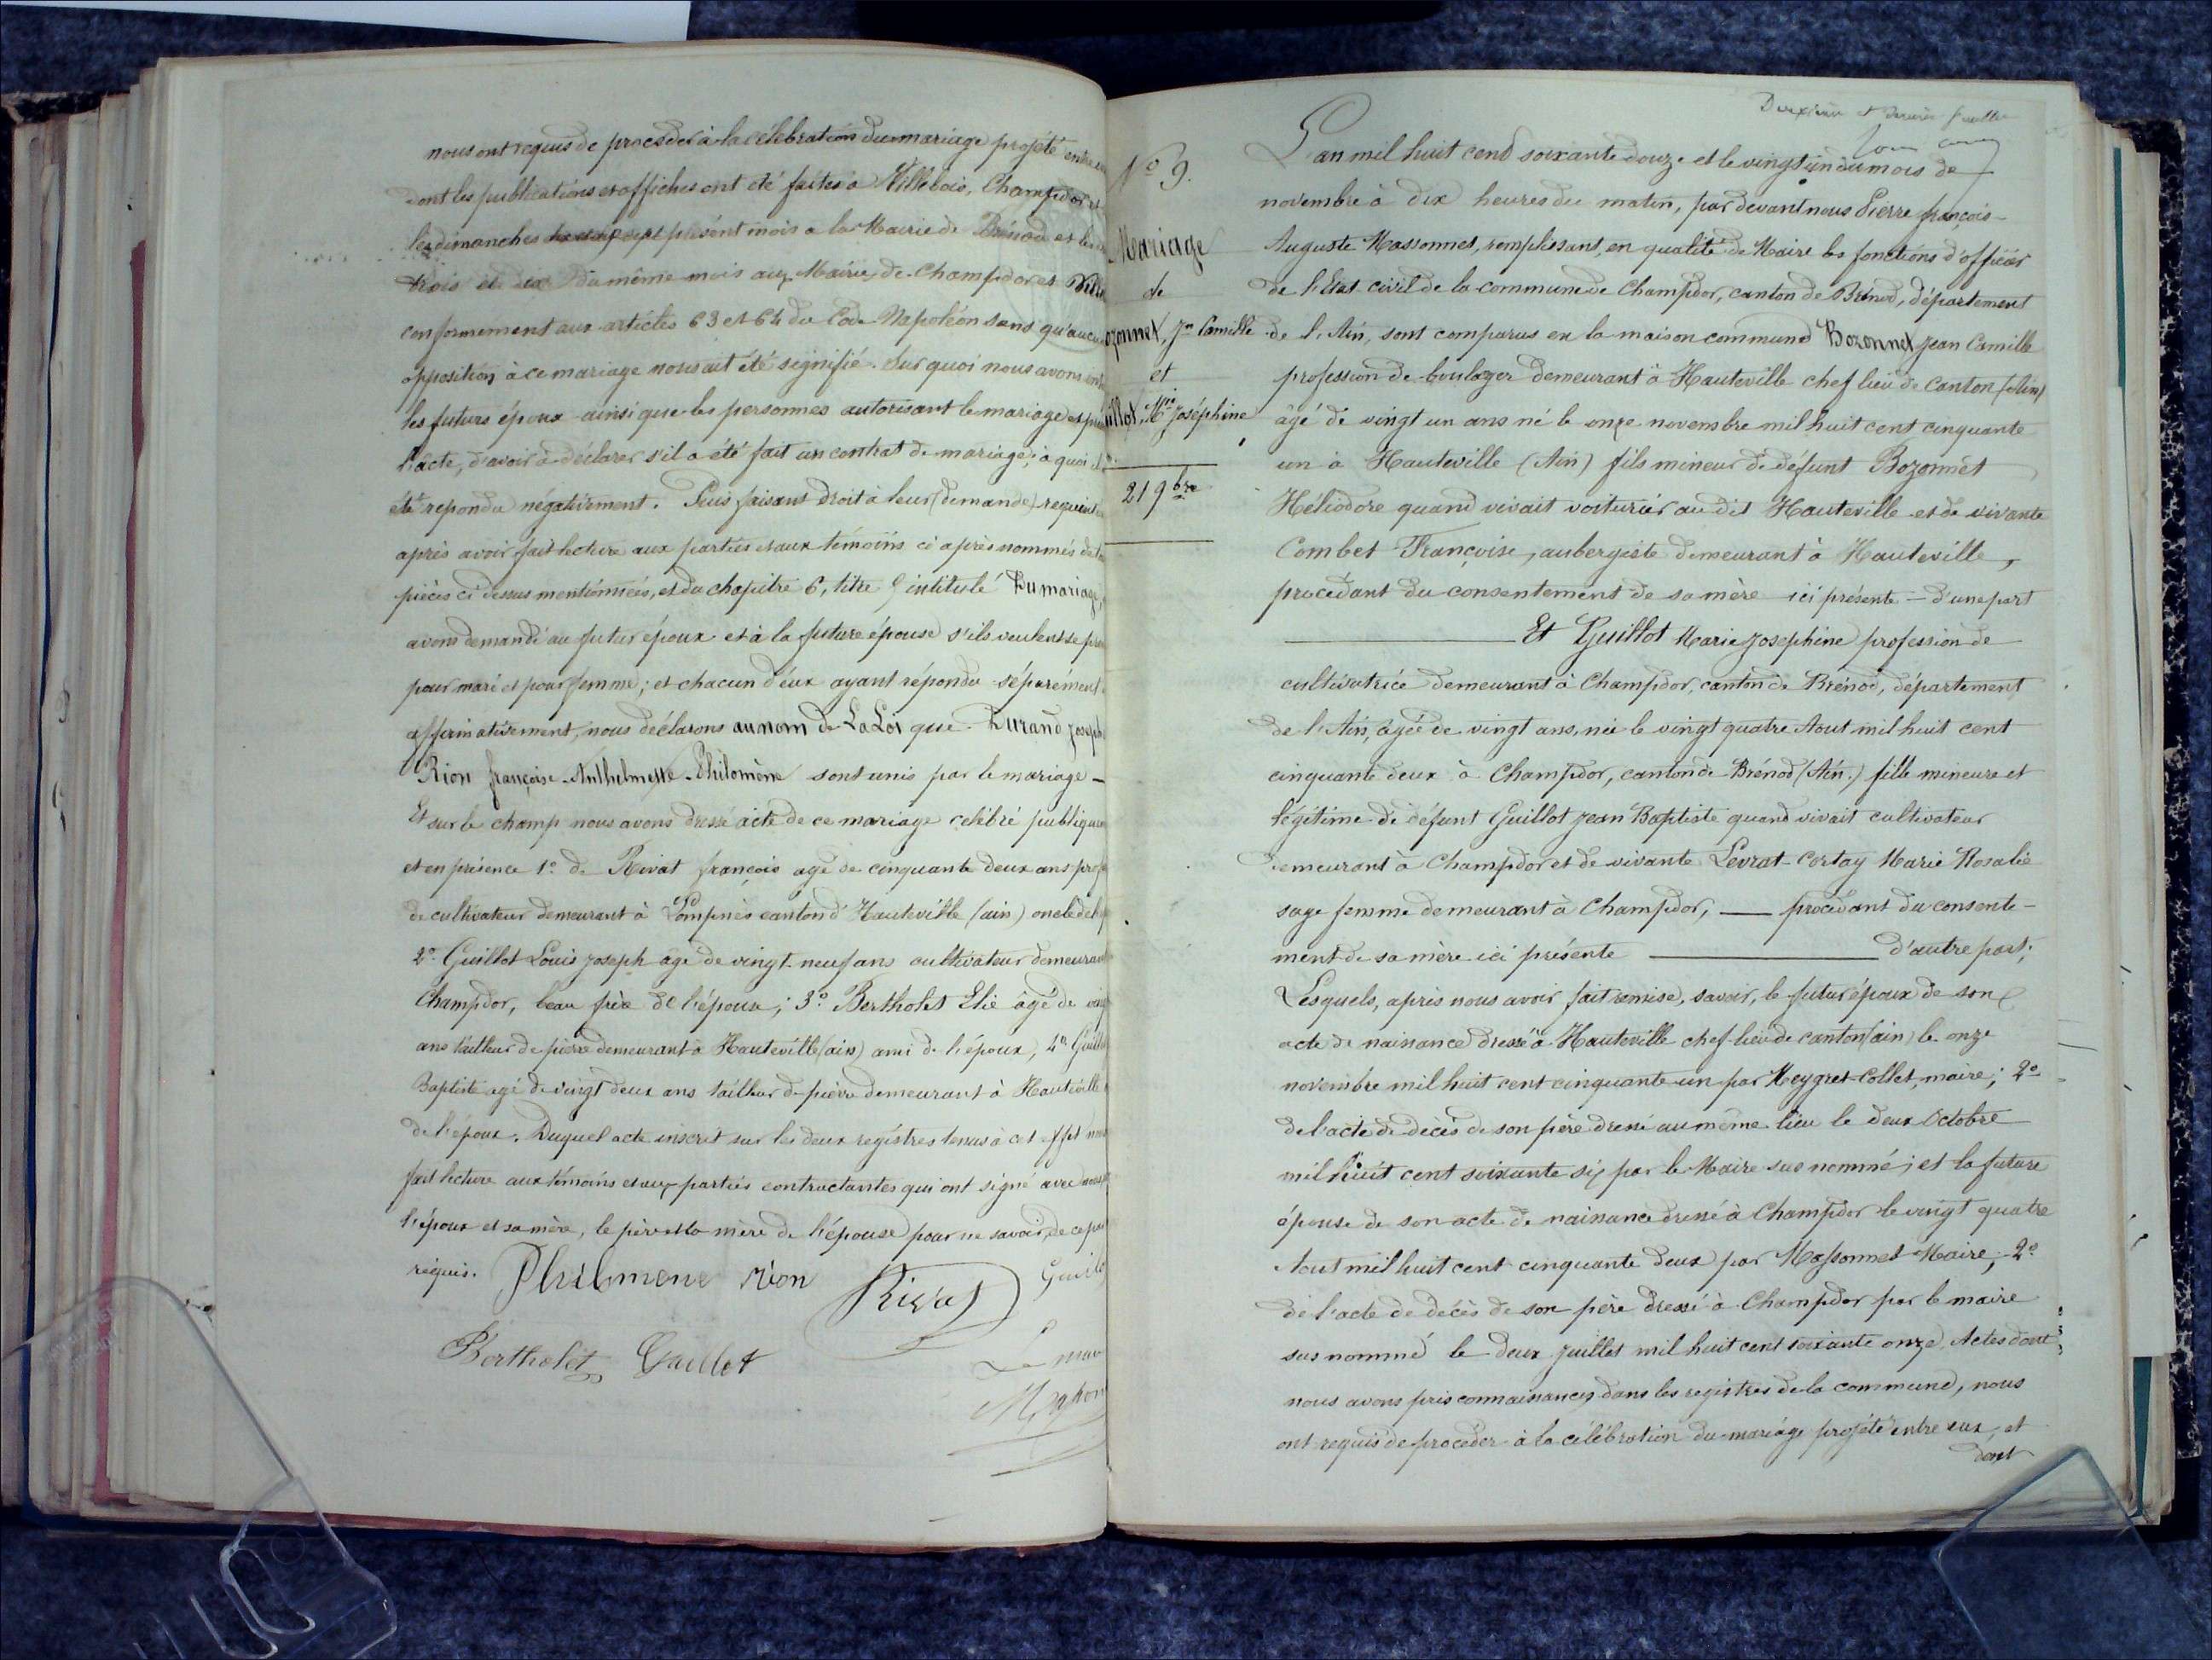 nous ont requis de procéder à la célébration du mariage projété entre
dont les publications et affiches ont été faites à Villebois, Champdor et
les dimanches présent mois a la Mairie de Brénod et les
trois et dix du même mois aux Mairies de Champdor et Ville
conformement aux articles 63 et 64 du Code Napoléon sans qu'aucu
opposition à ce mariage nous ait été signifié. Sur quoi nous avons
les futurs époux ainsi que les personnes autorisant le mariage et
l'acte, d'avoir à déclarer s'il a été fait un contrat de mariage; à quoi il
été repondu négativement. Puis faisant droit à leur (demande)
après avoir fait lecture aux parties et aux témoins ci après nommés de
pièces ci dessus mentionnées, et du chapitre 6, titre 5 intitulé Du mariage,
avons demandé au futur époux et à la future épouse s'ils veulent se
pour mari et pour femme; et chacun d'eux ayant répondu séparément
affirmativement, nous déclarons au nom de La Loi que Durand Joseph
Rion françoise Anthelmette Philomène sont unis par le mariage —
Et sur le champ nous avons dressé acte de ce mariage célébré publique
et en présence 1º de Rivat françois agé de cinquante deux ans prof
de cultivateur demeurant à Lompnès canton d'Hauteville (ain) oncle de l
2º Guillot Louis Joseph âgé de vingt-neuf ans cultivateur demeurant
Champdor, beau frère de l'épouse; 3º Bertholet Elie âgé de
ans tailleur de pierre demeurant à Hauteville (ain) ami de l'époux; 4º Guillo
Baptiste agé de vingt deux ans tailleur de pierre demeurant à Hauteville
de l'époux. Duquel acte inscrit sur les deux registres tenus à cet effet
fait lecture aux témoins et aux parties contractantes qui ont signé avec nous
l'époux et sa mère, le père et la mère de l'épouse pour ne savoir, de ce
réquis. Philomene rion Rivat
Bertholet Guillot
Le
Deuxième et dernier feuillet
Nº 9.
Mariage
de
ozonnet, Jn Camille
et
illot, Mie Joséphine
21 9bre
L'an mil huit cent soixante douze et le vingt un du mois de
novembre à dix heures du matin, par devant nous Pierre françois-
Auguste Massonnet, remplissant, en qualité de Maire les fonctions d'officier
de l'Etat civil de la commune de Champdor, canton de Brénod, département
de l'Ain, sont comparus en la maison commune Bozonnet Jean Camille
profession de boulager demeurant à Hauteville chef lieu de canton (Ain)
âgé de vingt un ans né le onze novembre mil huit cent cinquante
un à Hauteville (Ain) fils mineur de défunt Bozonnet
Héliodore quand vivait voiturier au dit Hauteville et de vivante
Combet Françoise, aubergiste demeurant à Hauteville,
procédant du consentement de sa mère ici présente — d'une part
Et Guillot Marie Josephine profession de
cultivatrice demeurant à Champdor, canton de Brénod, département
de l'Ain, âgée de vingt ans, née le vingt quatre Aout mil huit cent
cinquante deux à Champdor, canton de Brénod (Ain.) fille mineure et
légitime de défunt Guillot Jean Baptiste quand vivait cultivateur
demeurant à Champdor et de vivante Levrat-Cortay Marie Rosalie
sage femme demeurant à Champdor, — procédant du consente-
ment de sa mère ici présente — d'autre part;
Lesquels, après nous avoir fait remise, savoir, le futur époux de son
acte de naissance dressé à Hauteville chef-lieu de canton (ain) le onze
novembre mil huit cent cinquante-un par Meygret-Collet, maire; 2º
de l'acte de décès de son père dressé au même lieu le deux Octobre
mil huit cent soixante six par le Maire sus nommé; et la future
épouse de son acte de naissance dressé à Champdor le vingt quatre
Aout mil huit cent cinquante deux par Massonnet Maire; 2º
de l'acte de décès de son père dressé à Champdor par le maire
sus nommé le deux juillet mil huit cent soixante onze, Actes dont
nous avons pris connaissances dans les registres de la commune, nous
ont requis de procéder à la célébration du mariage projété entre eux, et
dont